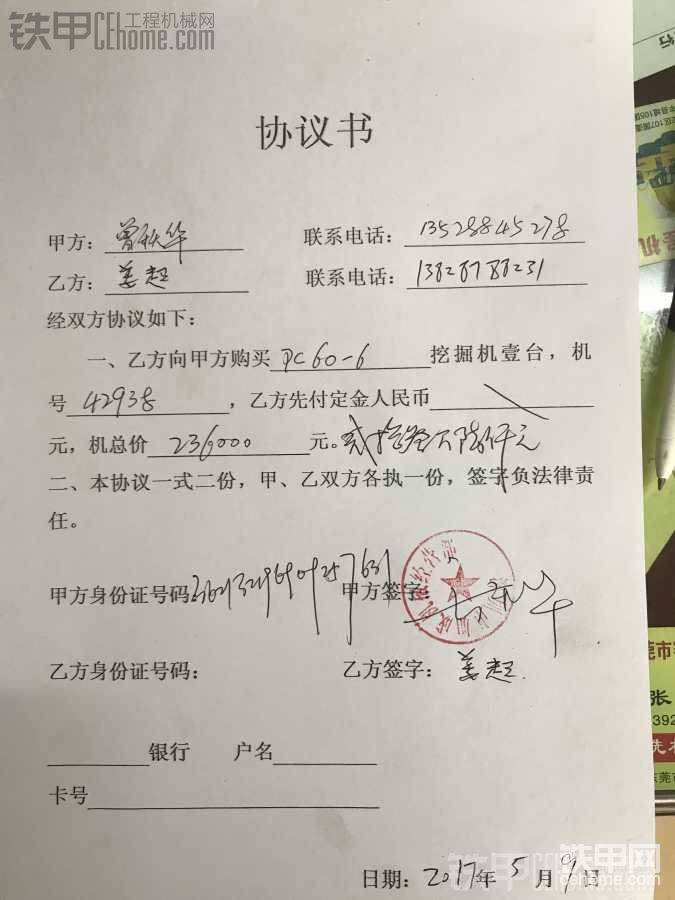 铁甲工程机械网
CEhome.com
协议书
甲方：曾秋华 联系电话：13528845278
乙方：姜超 联系电话：13828788231
经双方协议如下：
一、乙方向甲方购买PC60-6挖掘机壹台，机
号42938，乙方先付定金人民币
元，机总价236000元。贰拾叁万陆仟元
二、本协议一式二份，甲、乙双方各执一份，签字负法律责
任。
甲方身份证号码 甲方签字：
乙方身份证号码： 乙方签字：姜超
银行 户名
卡号
日期：2017年5月9日
铁甲网
CEhome.com